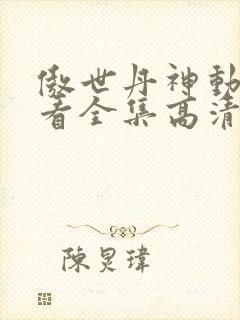 傲世丹神動
看全集高清
陳炅瑋